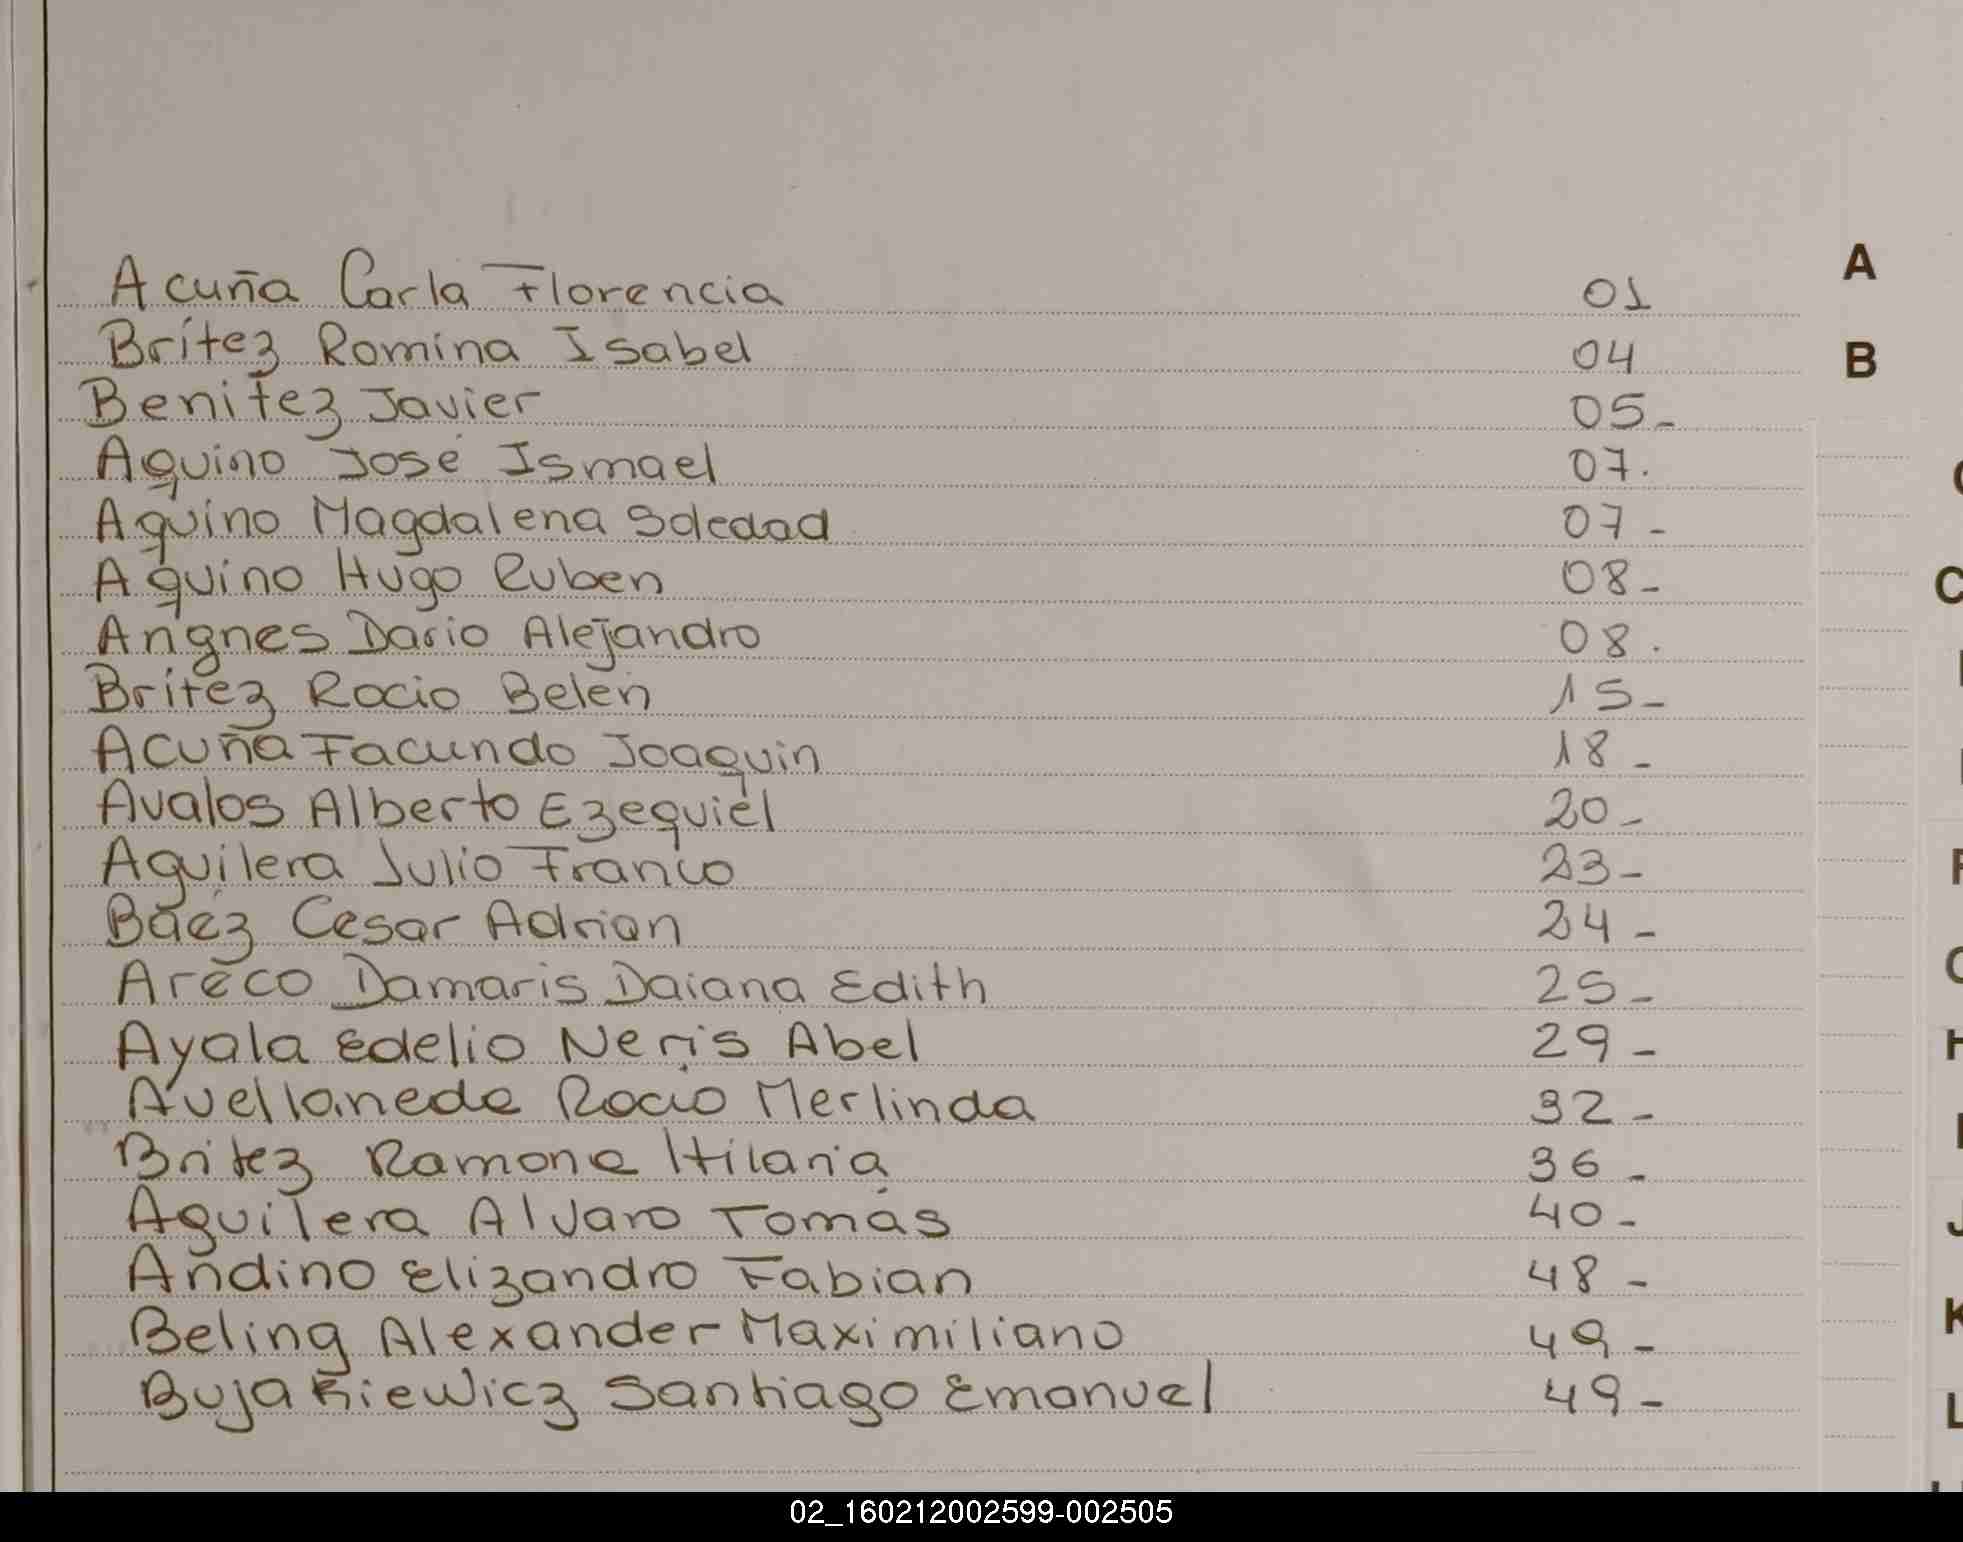 Acuña Carla Florencia 01
Brítez Romina Isabel 04
Benitez Javier 05-
Aquino José Ismael 07.
Aquino Magdalena Soledad 07-
Aquino Hugo Ruben 08-
Angnes Dario Alejandro 08.
Britez Rocio Belén 15-
Acuña Facundo Joaquin 18-
Avalos Alberto Ezequiel 20-
Aguilera Julio Franco 23-
Baez Cesar Adrian 24-
Areco Damaris Daiana Edith 25-
Ayala Edelio Neris Abel 29-
Avellaneda Rocio Merlinda 32-
Britez Ramona Hilaria 36-
Aguilera Alvaro Tomás 40-
Andino Elizandro Fabian 48-
Beling Alexander Maximiliano 49-
Bujakiewicz Santiago Emanuel 49-
A
B
C
F
H
J
K
L
02_160212002599-002505